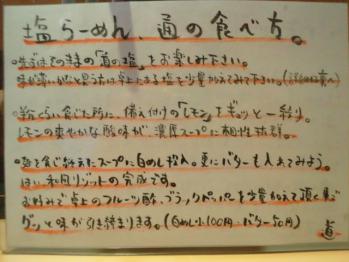 塩らーめん、通の食べ方。
・まずはそのまま「道の塩」をお楽しみ下さい。
味が薄いかなと思う方は卓上にある塩を少量加えてみて下さい。
・半分くらい食べた所に、備え付けの「レモン」をギュッと一絞り。
レモンの爽やかな酸味が濃厚スープに相性抜群。
・麺を食べ終えたスープに白めし投入。更にバターも入れてみよう。
はい、和風リゾットの完成です。
お好みで卓上のフルーツ酢、ブラックペッパーを少量加えて頂くと
グッと味が引き締まります。(白めし小100円・バター50円)
道